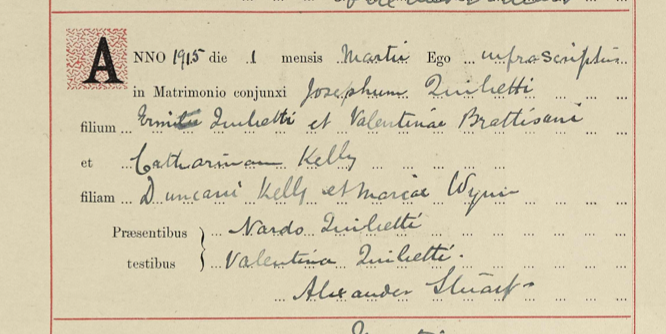 ANNO 1915 die 1 mensis Martii Ego infrascriptus
in Matrimonio conjunxi Josephum Quilietti
filium Quilietti et Valentinae Brattisani
et Catharinam Kelly
filiam Duncani Kelly et Mariae Wynn
Præsentibus Nardo Quilietti
testibus Valentina Quilietti.
Alexander Stuart